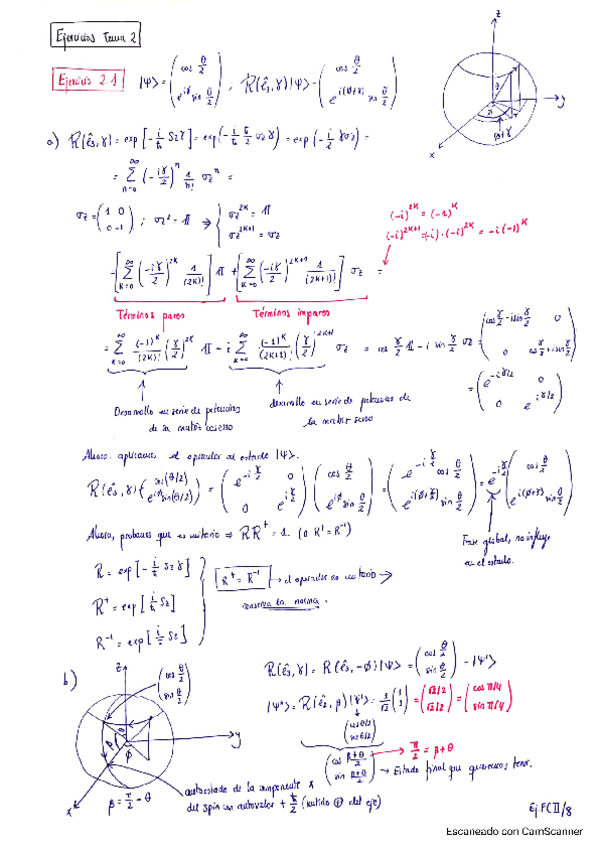 Ejercicios Tema 2
Ejercicio 2.1 |Ψ> = (cos θ/2, e^{iφ} sin θ/2) , R(ê₃,γ)|Ψ> = (cos θ/2, e^{i(φ+γ)} sin θ/2)
z
y
x
φ+γ
a) R(ê₃,γ) = exp[-i/ħ S_z γ] = exp(-i/ħ ħ/2 σ_z γ) = exp(-i/2 γσ_z) =
= Σ_{n=0}^∞ (-iγ/2)^n 1/n! σ_z^n =
σ_z = (1 0, 0 -1) ; σ_z² = 1 ⇒ { σ_z^{2K} = 1, σ_z^{2K+1} = σ_z
(-i)^{2K} = (-1)^K
(-i)^{2K+1} = (-i)·(-i)^{2K} = -i(-1)^K
= [Σ_{K=0}^∞ (-iγ/2)^{2K} 1/(2K)!] 1 + [Σ_{K=0}^∞ (-iγ/2)^{2K+1} 1/(2K+1)!] σ_z =
Términos pares Términos impares
= Σ_{K=0}^∞ (-1)^K/(2K)! (γ/2)^{2K} 1 - i Σ_{K=0}^∞ (-1)^K/(2K+1)! (γ/2)^{2K+1} σ_z = cos γ/2 1 - i sin γ/2 σ_z = (cos γ/2 - i sin γ/2 0, 0 cos γ/2 + i sin γ/2)
= (e^{-iγ/2} 0, 0 e^{iγ/2})
Desarrollo en serie de potencias de la matriz coseno
desarrollo en serie de potencias de la matriz seno
Ahora, aplicamos el operador al estado |Ψ>.
R(ê₃,γ) (cos(θ/2), e^{iφ} sin(θ/2)) = (e^{-iγ/2} 0, 0 e^{iγ/2}) (cos θ/2, e^{iφ} sin θ/2) = (e^{-iγ/2} cos θ/2, e^{i(φ+γ/2)} sin θ/2) = e^{-iγ/2} (cos θ/2, e^{i(φ+γ)} sin θ/2)
Ahora, probamos que es unitario ⇒ RR⁺ = 1. (o R⁺ = R⁻¹)
Fase global, no influye
en el estado.
R = exp[-i/ħ S_z γ]
R⁺ = exp[i/ħ S_z]
R⁻¹ = exp[i/ħ S_z]
R⁺ = R⁻¹ → el operador es unitario →
conserva la norma.
b)
z
y
x
(cos θ/2, sin θ/2)
β
θ
φ
β = π/2 - θ
R(ê₃,γ) = R(ê₃,-φ)|Ψ> = (cos θ/2, sin θ/2) = |Ψ'>
|Ψ''> = R(ê₂,β)|Ψ'> = 1/√2 (1, 1) = (√2/2, √2/2) = (cos π/4, sin π/4)
(cos θ/2, sin θ/2)
(cos (β+θ)/2, sin (β+θ)/2) → π/2 = β+θ
→ Estado final que queremos tener.
autoestado de la componente x
del spin con autovalor + ħ/2 (sentido ⊕ del eje)
Ej. FCII/8
Escaneado con CamScanner